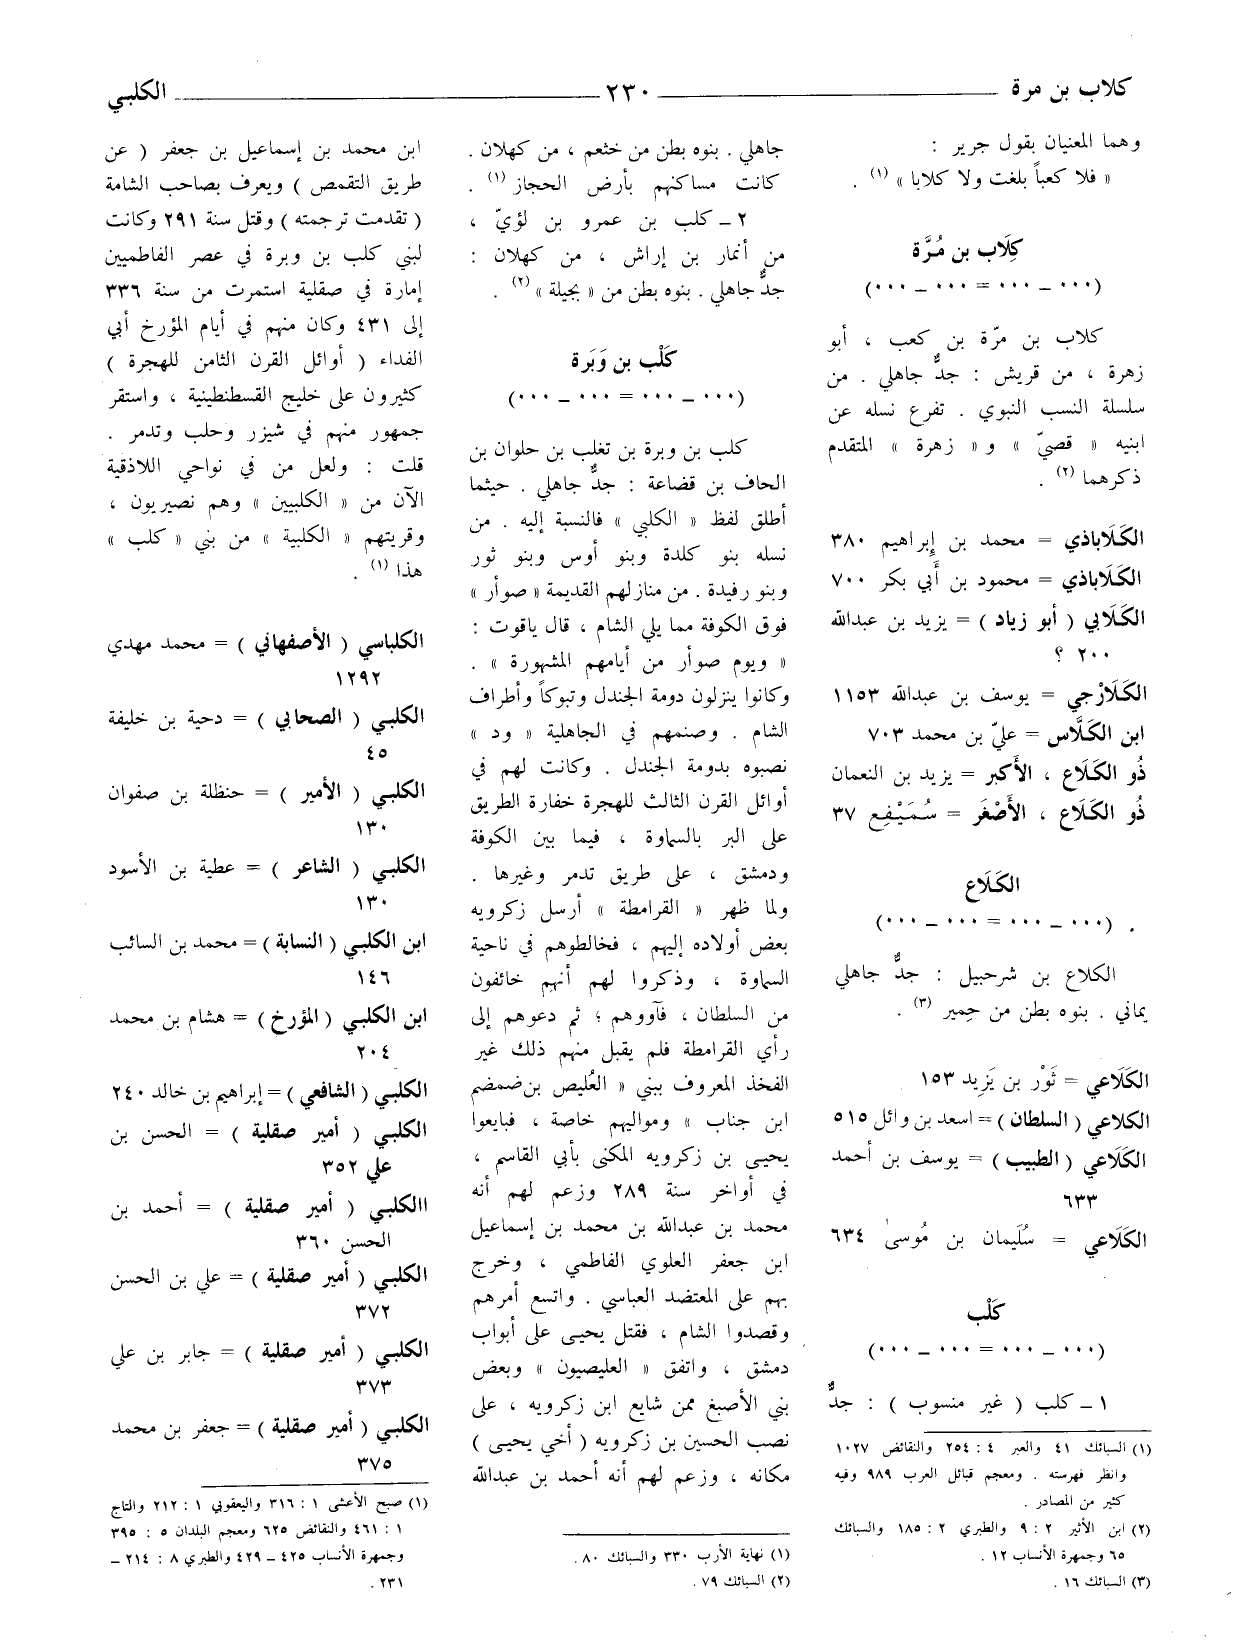 كلاب بن مرة ــــــ ٢٣٠ ــــــ الكلبي
وهما المعنيان بقول جرير :
« فلا كعباً بلغت ولا كلابا » (١) .
كِلَاب بن مُرَّة
(٠٠٠ ــ ٠٠٠ = ٠٠٠ ــ ٠٠٠)
كلاب بن مرّة بن كعب ، أبو
زهرة ، من قريش : جدٌّ جاهلي . من
سلسلة النسب النبوي . تفرع نسله عن
ابنيه « قصيّ » و « زهرة » المتقدم
ذكرهما (٢) .
الكَلَاباذي = محمد بن إبراهيم ٣٨٠
الكَلَاباذي = محمود بن أبي بكر ٧٠٠
الكَلَابي ( أبو زياد ) = يزيد بن عبدالله
٢٠٠ ؟
الكَلَارْجي = يوسف بن عبدالله ١١٥٣
ابن الكَلَّاس = عليّ بن محمد ٧٠٣
ذُو الكَلَاع ، الأَكبر = يزيد بن النعمان
ذُو الكَلَاع ، الأَصْغَر = سُمَيْفِع ٣٧
الكَلَاع
(٠٠٠ ــ ٠٠٠ = ٠٠٠ ــ ٠٠٠) .
الكلاع بن شرحبيل : جدٌّ جاهلي
يماني . بنوه بطن من حِمير (٣) .
الكَلَاعي = ثَوْر بن يَزيد ١٥٣
الكلاعي ( السلطان ) = اسعد بن وائل ٥١٥
الكَلَاعي ( الطبيب ) = يوسف بن أحمد
٦٣٣
الكَلَاعي = سُلَيمان بن مُوسىٰ ٦٣٤
كَلْب
(٠٠٠ ــ ٠٠٠ = ٠٠٠ ــ ٠٠٠)
١ ــ كلب ( غير منسوب ) : جدٌّ
(١) السبائك ٤١ والعبر ٤ : ٢٥٤ والنقائض ١٠٢٧
وانظر فهرسته . ومعجم قبائل العرب ٩٨٩ وفيه
كثير من المصادر .
(٢) ابن الأثير ٢ : ٩ والطبري ٢ : ١٨٥ والسبائك
٦٥ وجمهرة الأنساب ١٢ .
(٣) السبائك ١٦ .
جاهلي . بنوه بطن من خثعم ، من كهلان .
كانت مساكنهم بأرض الحجاز (١) .
٢ ــ كلب بن عمرو بن لؤيّ ،
من أنمار بن إراش ، من كهلان :
جدٌّ جاهلي . بنوه بطن من « بجيلة » (٢) .
كَلْب بن وَبَرة
(٠٠٠ ــ ٠٠٠ = ٠٠٠ ــ ٠٠٠)
كلب بن وبرة بن تغلب بن حلوان بن
الحاف بن قضاعة : جدٌّ جاهلي . حيثما
أطلق لفظ « الكلبي » فالنسبة إليه . من
نسله بنو كلدة وبنو أوس وبنو ثور
وبنو رفيدة . من منازلهم القديمة « صوأر »
فوق الكوفة مما يلي الشام ، قال ياقوت :
« ويوم صوأر من أيامهم المشهورة » .
وكانوا ينزلون دومة الجندل وتبوكاً وأطراف
الشام . وصنمهم في الجاهلية « ود »
نصبوه بدومة الجندل . وكانت لهم في
أوائل القرن الثالث للهجرة خفارة الطريق
على البر بالسماوة ، فيما بين الكوفة
ودمشق ، على طريق تدمر وغيرها .
ولما ظهر « القرامطة » أرسل زكرويه
بعض أولاده إليهم ، فخالطوهم في ناحية
السماوة ، وذكروا لهم أنهم خائفون
من السلطان ، فآووهم ؛ ثم دعوهم إلى
رأي القرامطة فلم يقبل منهم ذلك غير
الفخذ المعروف ببني « العُليص بن ضمضم
ابن جناب » ومواليهم خاصة ، فبايعوا
يحيى بن زكرويه المكنى بأبي القاسم ،
في أواخر سنة ٢٨٩ وزعم لهم أنه
محمد بن عبدالله بن محمد بن إسماعيل
ابن جعفر العلوي الفاطمي ، وخرج
بهم على المعتضد العباسي . واتسع أمرهم
وقصدوا الشام ، فقتل يحيى على أبواب
دمشق ، واتفق « العليصيون » وبعض
بني الأصبغ ممن شايع ابن زكرويه ، على
نصب الحسين بن زكرويه ( أخي يحيى )
مكانه ، وزعم لهم أنه أحمد بن عبدالله
(١) نهاية الأرب ٣٣٠ والسبائك ٨٠ .
(٢) السبائك ٧٩ .
ابن محمد بن إسماعيل بن جعفر ( عن
طريق التقمص ) ويعرف بصاحب الشامة
( تقدمت ترجمته ) وقتل سنة ٢٩١ وكانت
لبني كلب بن وبرة في عصر الفاطميين
إمارة في صقلية استمرت من سنة ٣٣٦
إلى ٤٣١ وكان منهم في أيام المؤرخ أبي
الفداء ( أوائل القرن الثامن للهجرة )
كثيرون على خليج القسطنطينية ، واستقر
جمهور منهم في شيزر وحلب وتدمر .
قلت : ولعل من في نواحي اللاذقية
الآن من « الكلبيين » وهم نصيريون ،
وقريتهم « الكلبية » من بني « كلب »
هذا (١) .
الكلباسي ( الأصفهاني ) = محمد مهدي
١٢٩٢
الكلبي ( الصحابي ) = دحية بن خليفة
٤٥
الكلبي ( الأمير ) = حنظلة بن صفوان
١٣٠
الكلبي ( الشاعر ) = عطية بن الأسود
١٣٠
ابن الكلبي ( النسابة ) = محمد بن السائب
١٤٦
ابن الكلبي ( المؤرخ ) = هشام بن محمد
٢٠٤
الكلبي ( الشافعي ) = إبراهيم بن خالد ٢٤٠
الكلبي ( أمير صقلية ) = الحسن بن
علي ٣٥٢
االكلبي ( أمير صقلية ) = أحمد بن
الحسن ٣٦٠
الكلبي ( أمير صقلية ) = علي بن الحسن
٣٧٢
الكلبي ( أمير صقلية ) = جابر بن علي
٣٧٣
الكلبي ( أمير صقلية ) = جعفر بن محمد
٣٧٥
(١) صبح الأعشى ١ : ٣١٦ واليعقوبي ١ : ٢١٢ والتاج
١ : ٤٦١ والنقائض ٦٢٥ ومعجم البلدان ٥ : ٣٩٥
وجمهرة الأنساب ٤٢٥ ــ ٤٢٩ والطبري ٨ : ٢١٤ ــ
٢٣١ .